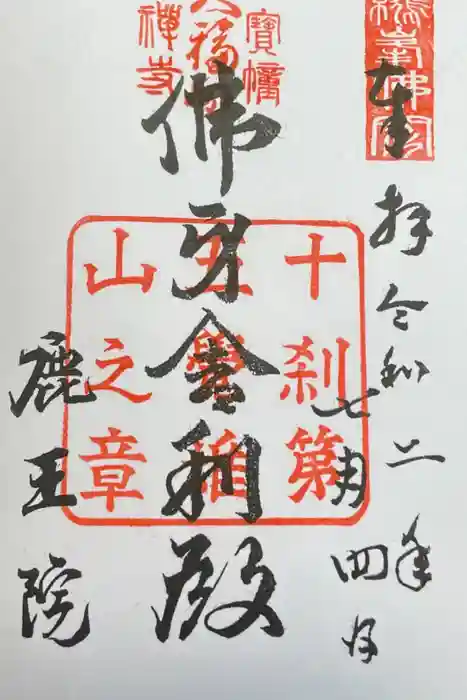 奉拝 令和二年
七月四日
佛牙舍利殿
鹿王院
十刹第
五覺雄
山之章
寶幢
大福田
禪寺